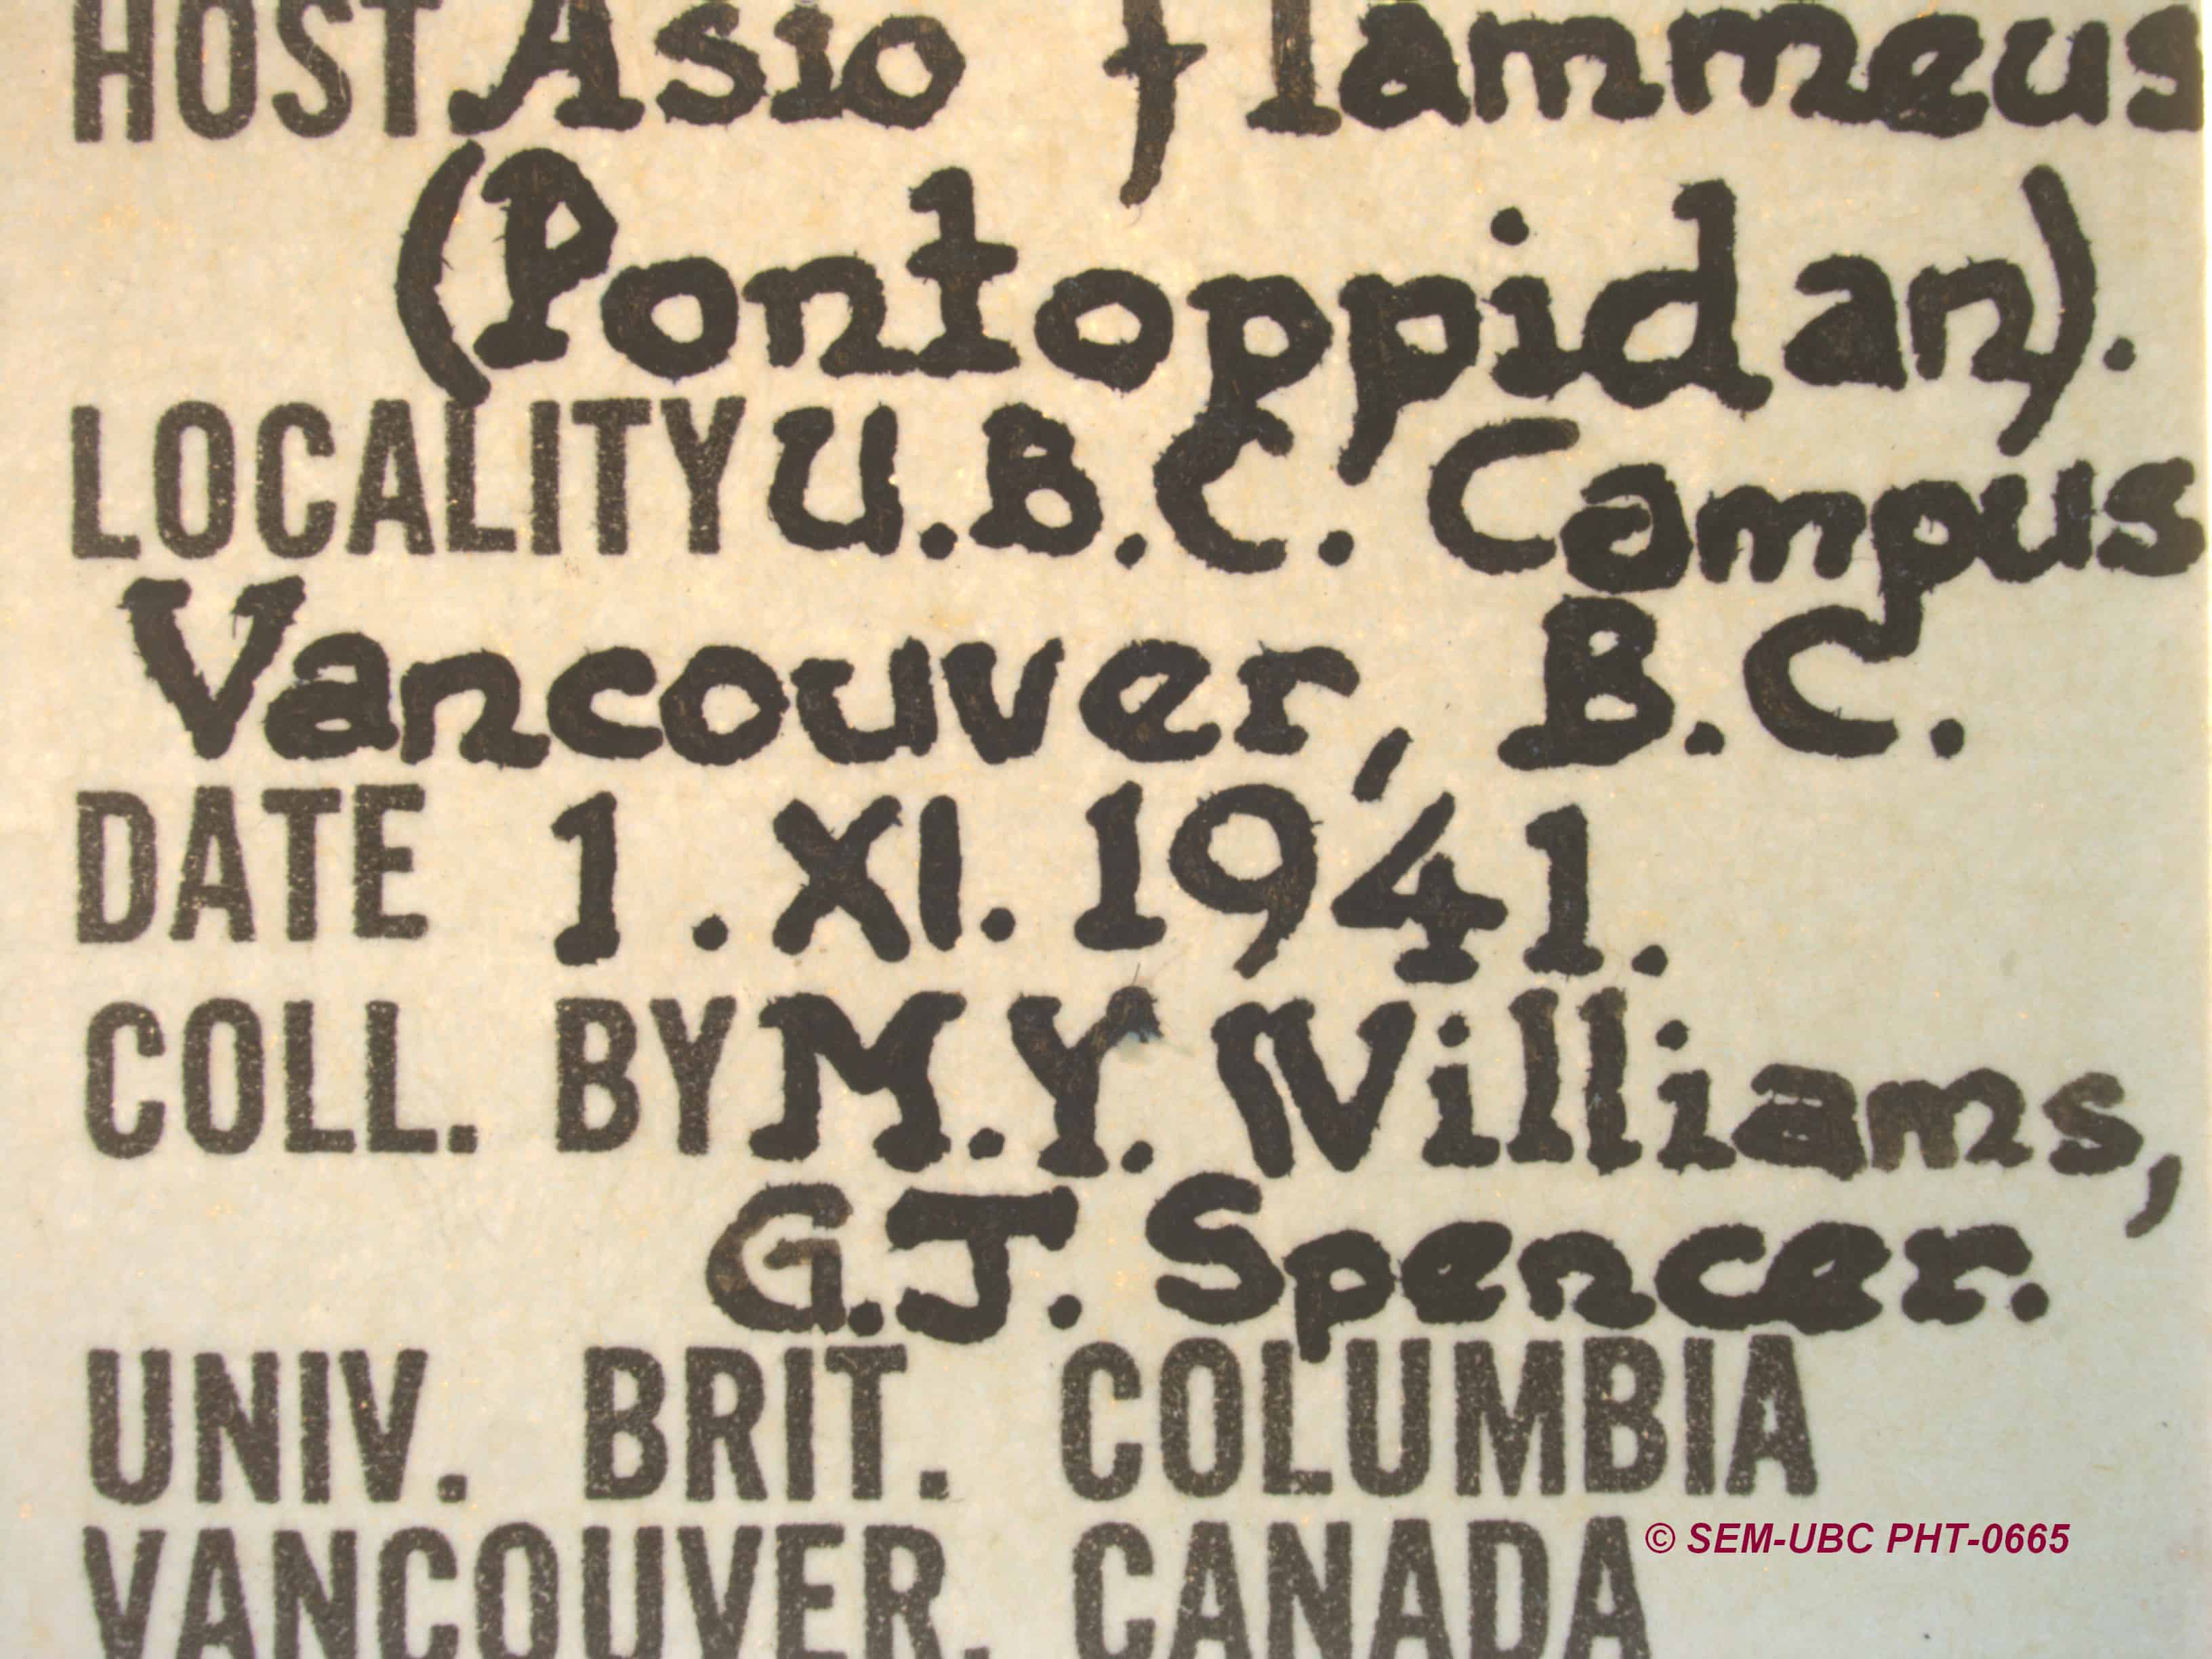 HOST Asio flammeus
(Pontoppidan).
LOCALITY U.B.C. Campus
Vancouver, B.C.
DATE 1. XI. 1941.
COLL. BY M.Y. Williams,
G.J. Spencer.
UNIV. BRIT. COLUMBIA
VANCOUVER. CANADA
© SEM-UBC PHT-0665